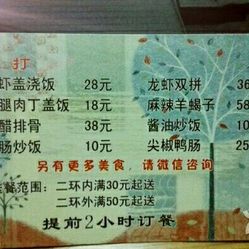 打
虾盖浇饭 28元 龙虾双拼 36
腿肉丁盖饭 18元 麻辣羊蝎子 58
醋排骨 38元 酱油炒饭 10
肠炒饭 10元 尖椒鸭肠 25
另有更多美食，请微信咨询
餐范围：二环内满30元起送
二环外满50元起送
提前2小时订餐